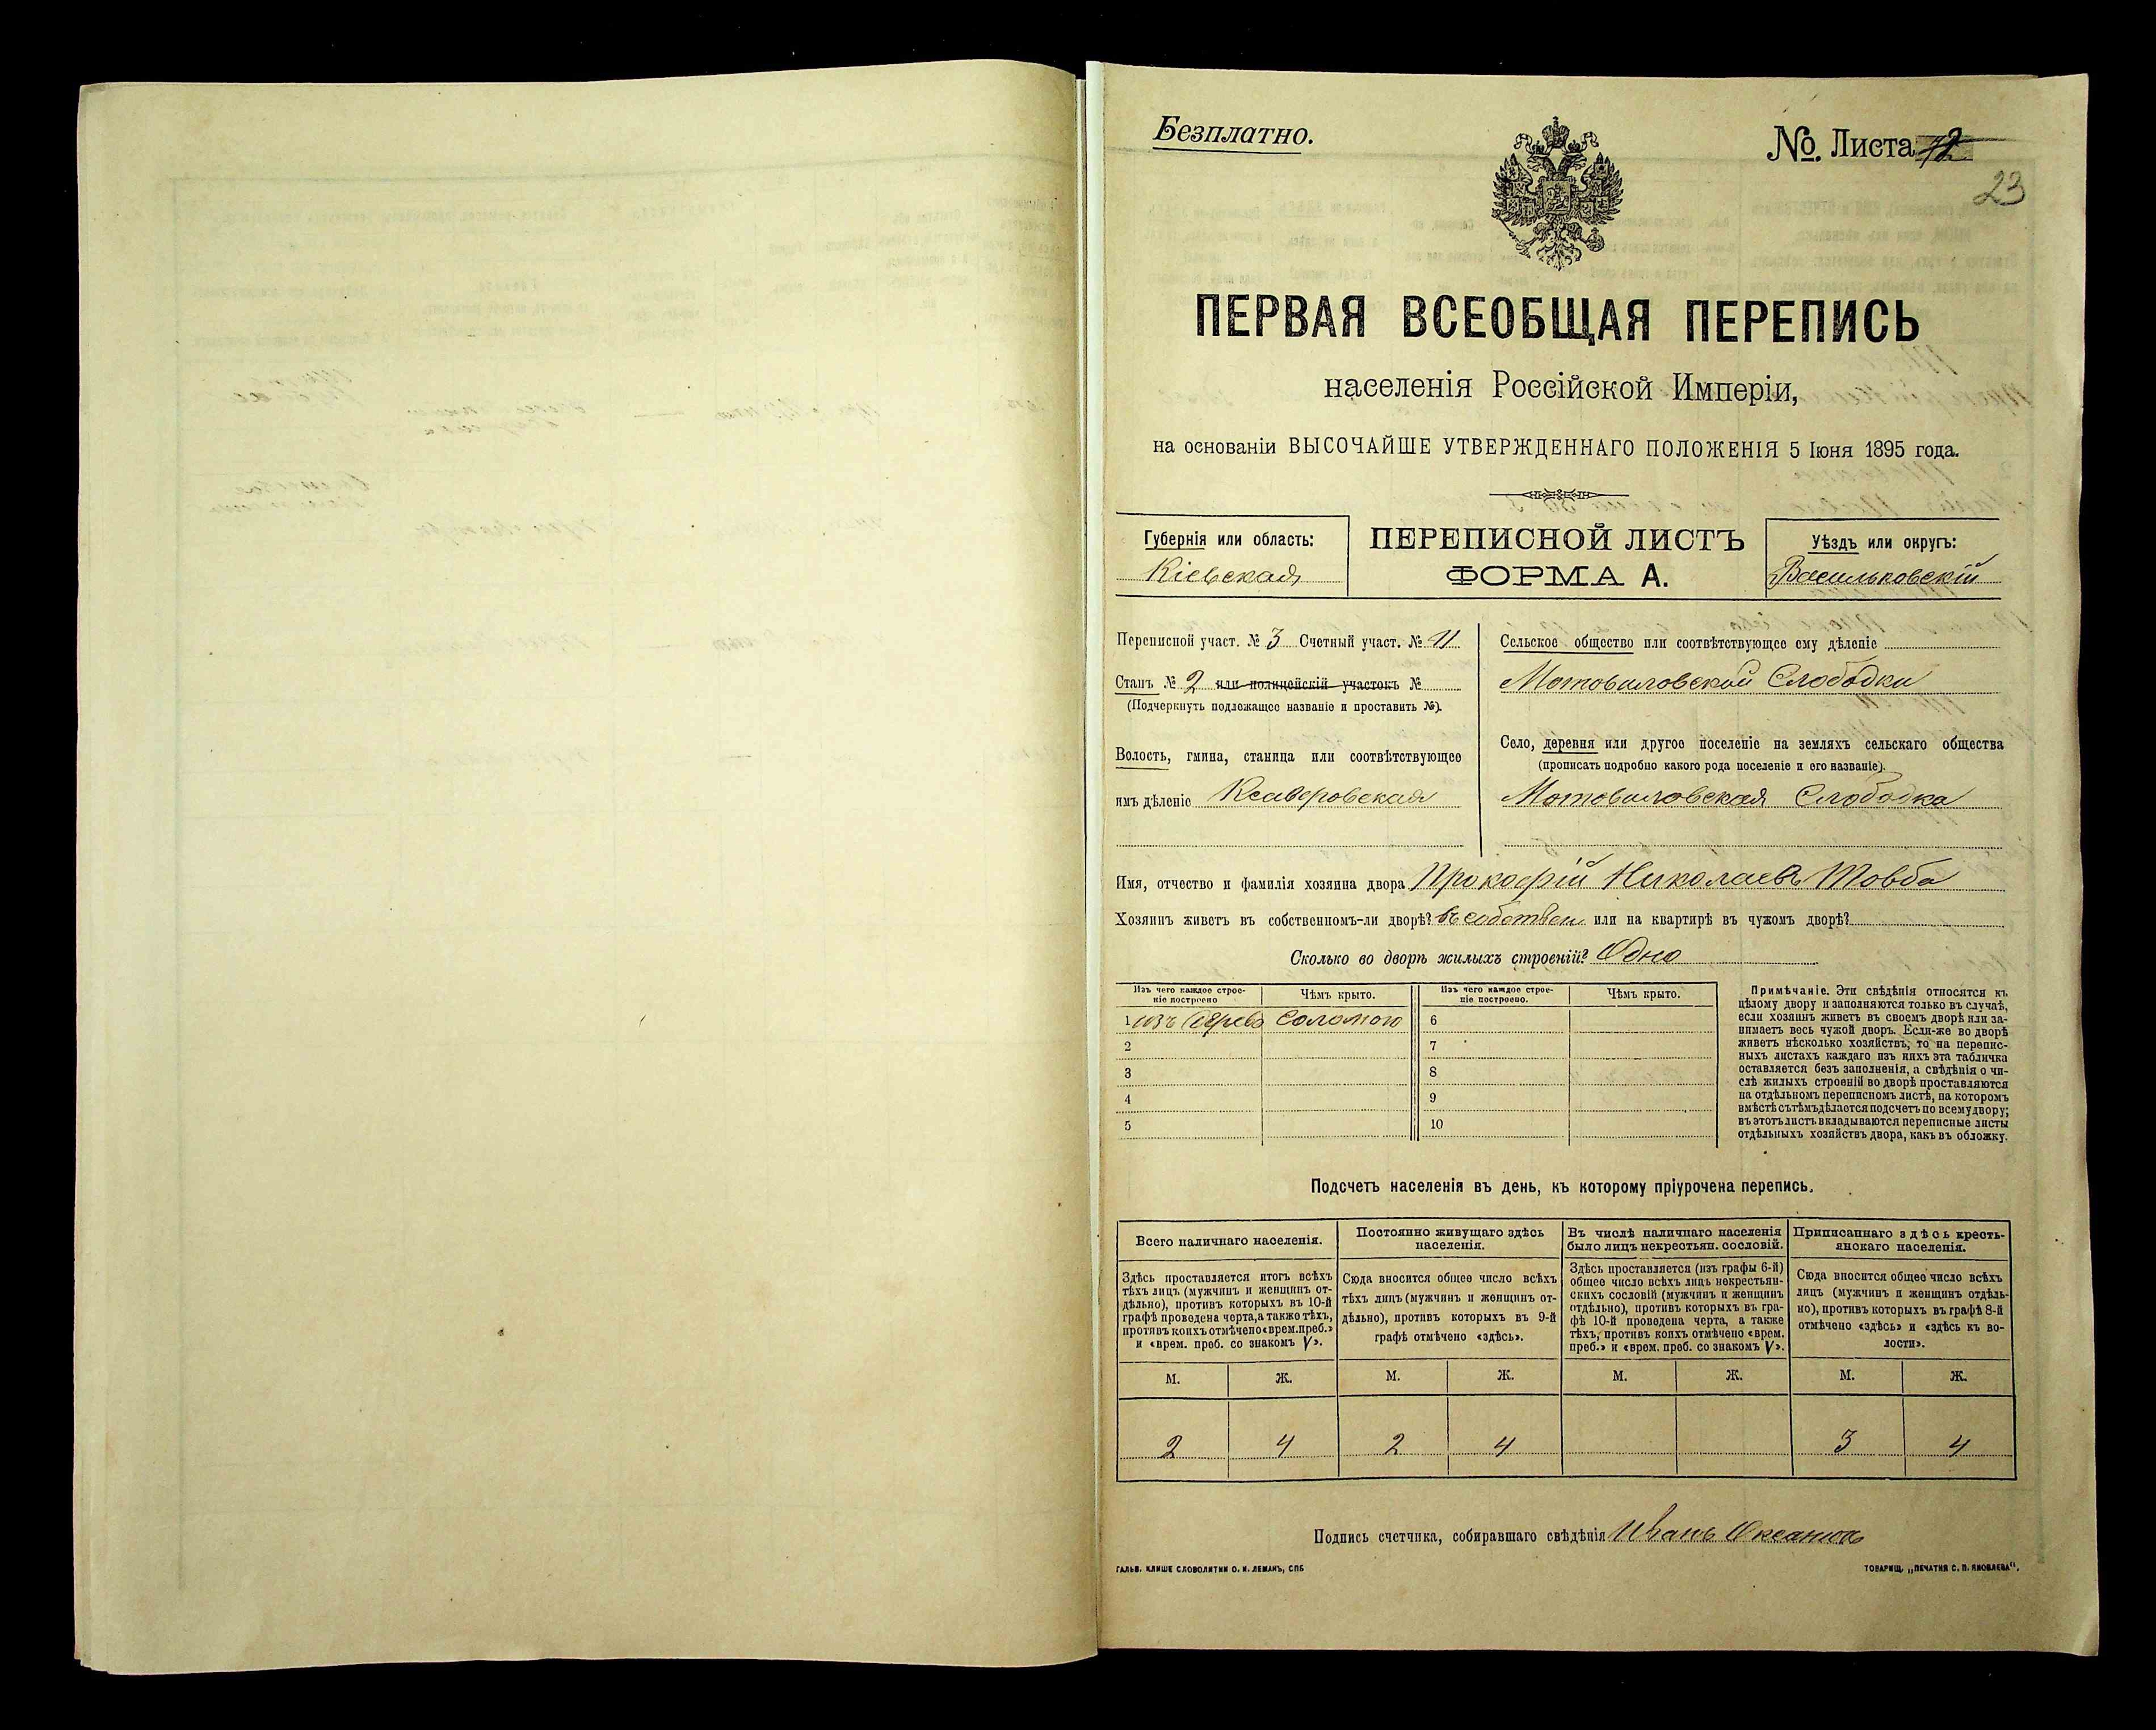 Безплатно.
№ Листа 12
23
ПЕРВАЯ ВСЕОБЩАЯ ПЕРЕПИСЬ
населенія Россійской Имперіи,
на основаніи ВЫСОЧАЙШЕ УТВЕРЖДЕННАГО ПОЛОЖЕНІЯ 5 Іюня 1895 года.
Губернія или область:
Кіевская
ПЕРЕПИСНОЙ ЛИСТЪ
ФОРМА А.
Уѣздъ или округъ:
Васильковскій
Переписной участ. № 3 Счетный участ. № 11
Станъ № 2 или полицейскій участокъ №
(Подчеркнуть подлежащее названіе и проставить №).
Волость, гмина, станица или соотвѣтствующее
имъ дѣленіе Ксаверовская
Сельское общество или соотвѣтствующее ему дѣленіе
Мотовиловской Слободки
Село, деревня или другое поселеніе на земляхъ сельскаго общества
(прописать подробно какого рода поселеніе и его названіе).
Мотовиловская Слободка
Имя, отчество и фамилія хозяина двора Прокофій Николаевъ Товба
Хозяинъ живетъ въ собственномъ-ли дворѣ? въ собствен или на квартирѣ въ чужомъ дворѣ?
Сколько во дворѣ жилыхъ строеній? Одно
Изъ чего каждое строе-
ніе построено
Чѣмъ крыто.
Изъ чего каждое строе-
ніе построено.
Чѣмъ крыто.
1 изъ дерева соломою
2
3
4
5
6
7
8
9
10
Примѣчаніе. Эти свѣдѣнія относятся къ
цѣлому двору и заполняются только въ случаѣ,
если хозяинъ живетъ въ своемъ дворѣ или за-
нимаетъ весь чужой дворъ. Если-же во дворѣ
живетъ нѣсколько хозяйствъ, то на перепис-
ныхъ листахъ каждаго изъ нихъ эта табличка
оставляется безъ заполненія, а свѣдѣнія о чи-
слѣ жилыхъ строеній во дворѣ проставляются
на отдѣльномъ переписномъ листѣ, на которомъ
вмѣстѣ съ тѣмъ дѣлается подсчетъ по всему двору;
въ этотъ листъ вкладываются переписные листы
отдѣльныхъ хозяйствъ двора, какъ въ обложку.
Подсчетъ населенія въ день, къ которому пріурочена перепись.
Всего наличнаго населенія.
Здѣсь проставляется итогъ всѣхъ
тѣхъ лицъ (мужчинъ и женщинъ от-
дѣльно), противъ которыхъ въ 10-й
графѣ проведена черта, а также тѣхъ,
противъ коихъ отмѣчено «врем. преб.»
и «врем. преб. со знакомъ V».
Постоянно живущаго здѣсь
населенія.
Сюда вносится общее число всѣхъ
тѣхъ лицъ (мужчинъ и женщинъ от-
дѣльно), противъ которыхъ въ 9-й
графѣ отмѣчено «здѣсь».
Въ числѣ наличнаго населенія
было лицъ некрестьян. сословій.
Здѣсь проставляется (изъ графы 6-й)
общее число всѣхъ лицъ некрестьян-
скихъ сословій (мужчинъ и женщинъ
отдѣльно), противъ которыхъ въ гра-
фѣ 10-й проведена черта, а также
тѣхъ, противъ коихъ отмѣчено «врем.
преб.» и «врем. преб. со знакомъ V».
Приписаннаго здѣсь кресть-
янскаго населенія.
Сюда вносится общее число всѣхъ
лицъ (мужчинъ и женщинъ отдѣль-
но), противъ которыхъ въ графѣ 8-й
отмѣчено «здѣсь» и «здѣсь къ во-
лости».
М. Ж. М. Ж. М. Ж. М. Ж.
2 4 2 4 3 4
Подпись счетчика, собиравшаго свѣдѣнія Иванъ
ГАЛЬВ. КЛИШЕ СЛОВОЛИТНИ О. И. ЛЕМАНЪ, СПБ
ТОВАРИЩ. „ПЕЧАТНЯ С. П. ЯКОВЛЕВА".